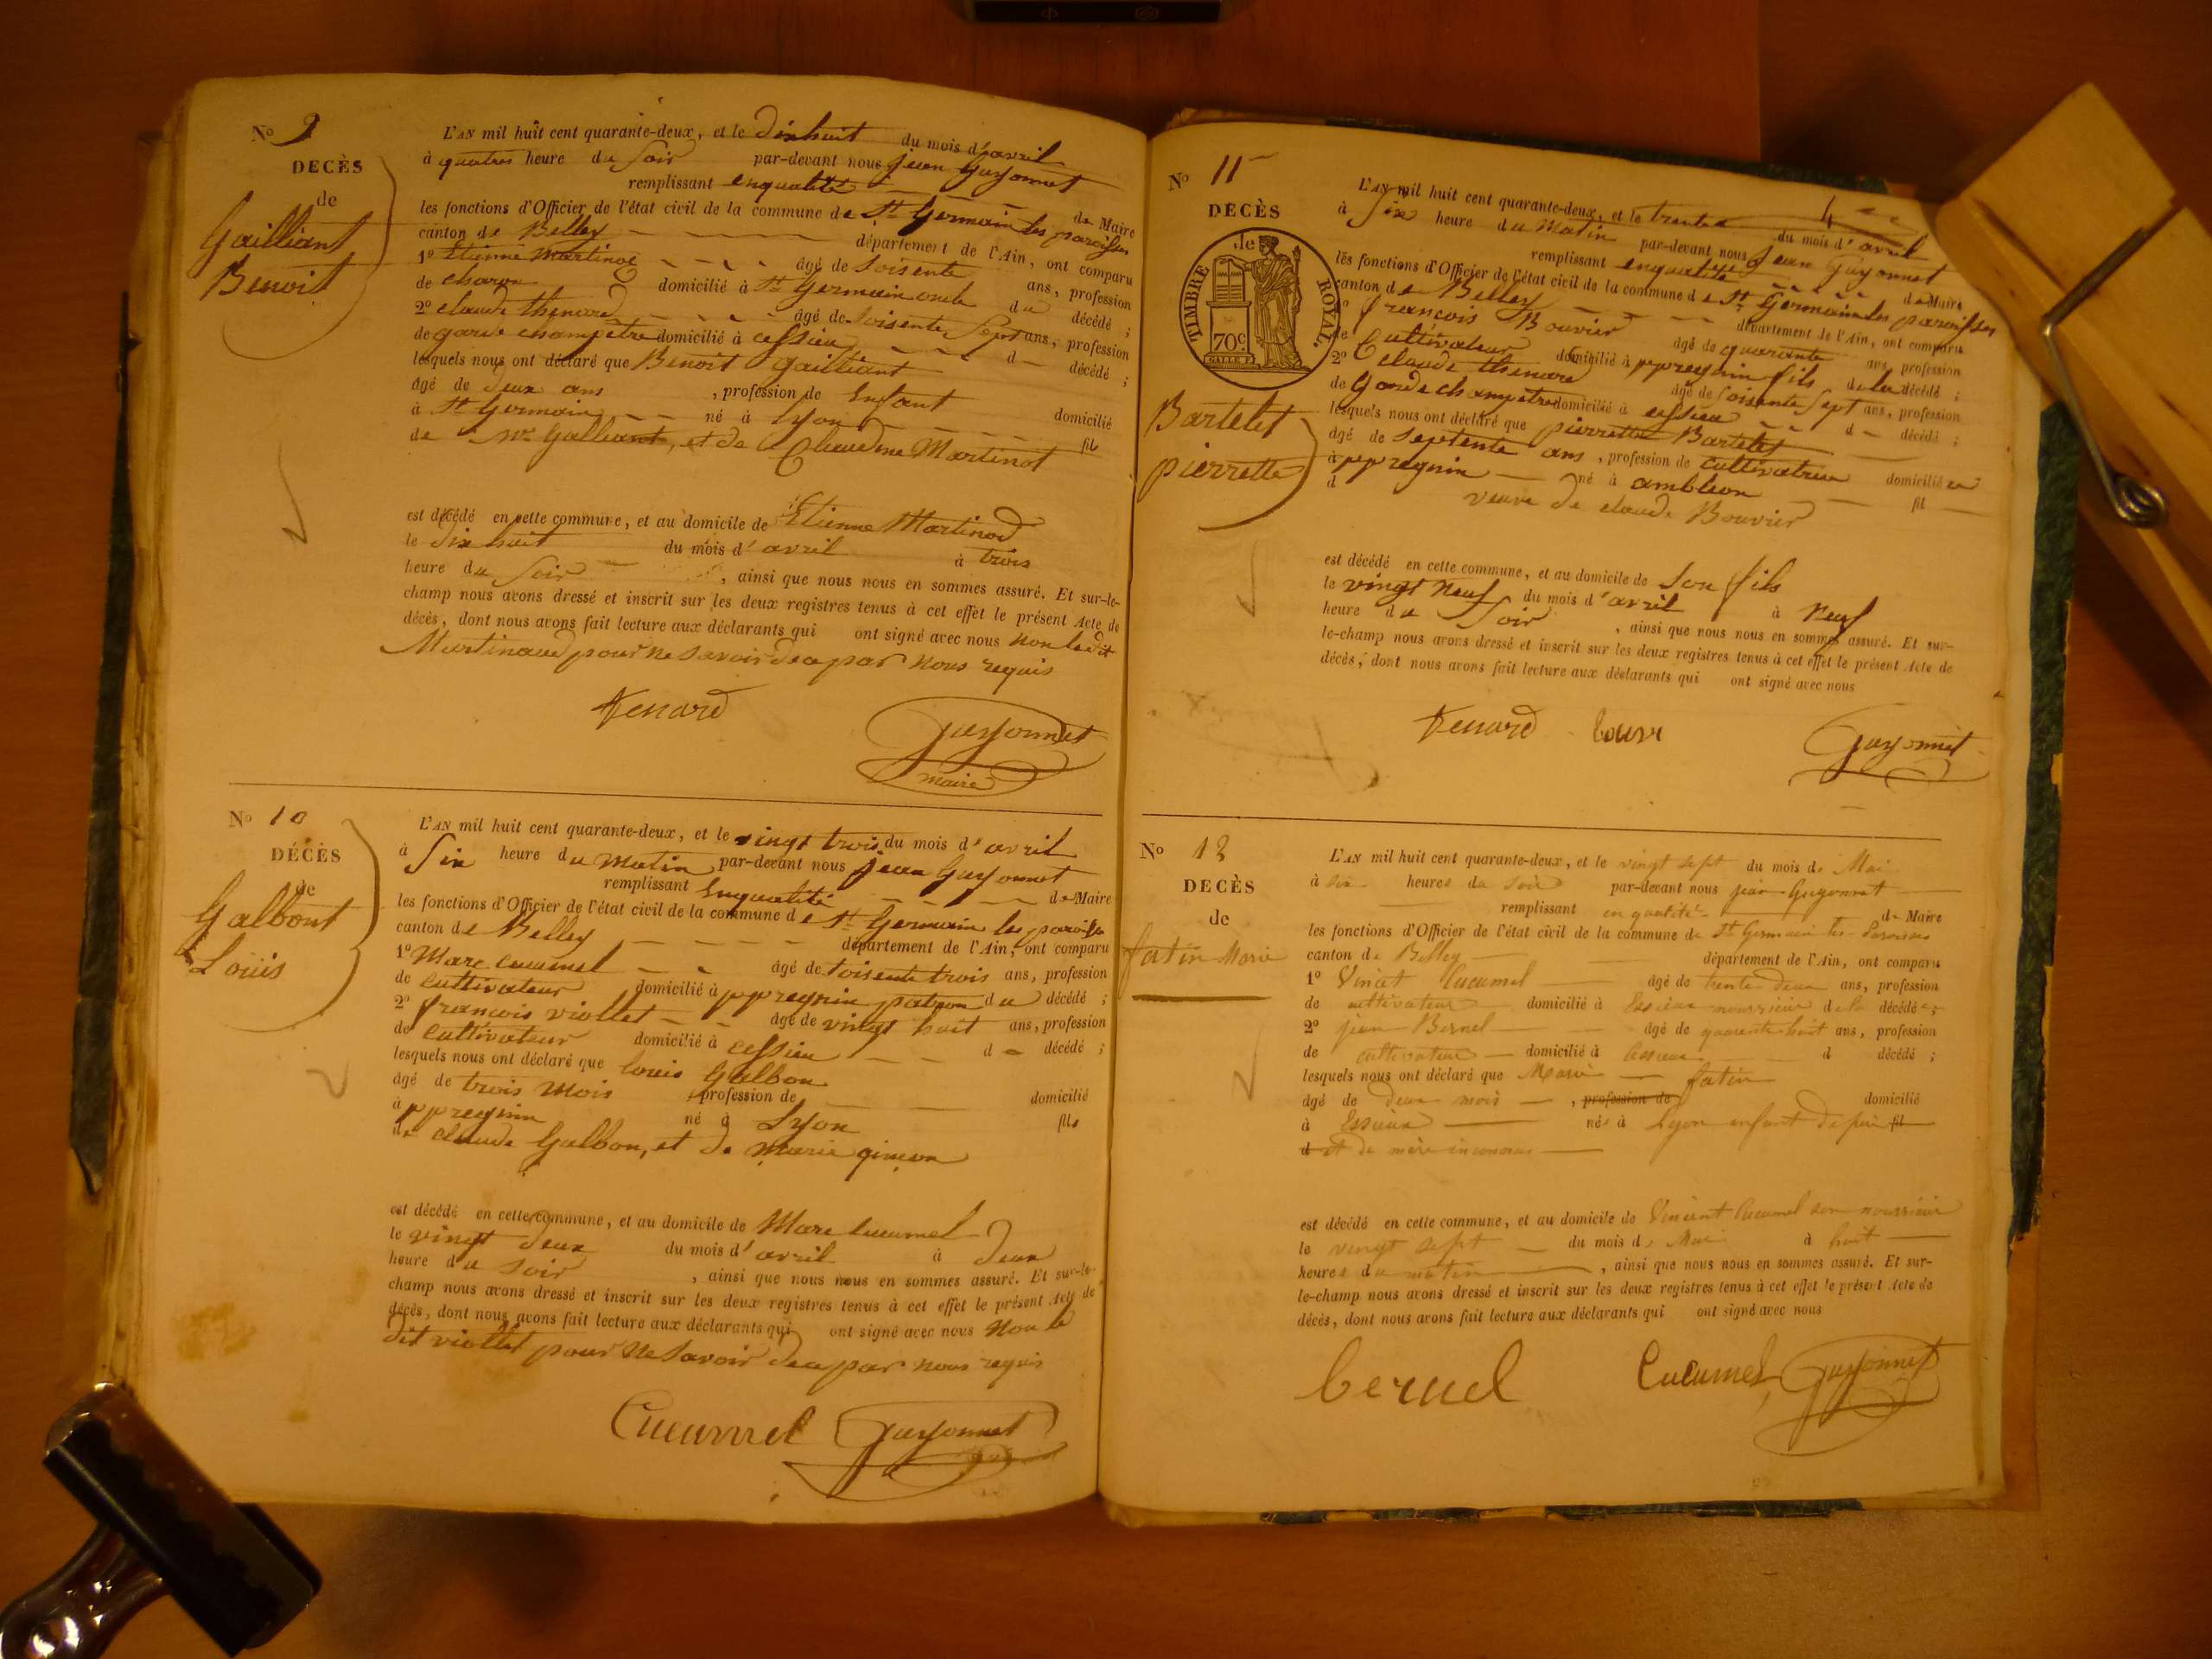 No 9
DECÈS
de
Gailliant
Benoit
L'AN mil huit cent quarante-deux, et le dixhuit du mois d'avril
à quatres heure du soir par-devant nous jean Guyonnet
remplissant enqualité de Maire
les fonctions d'Officier de l'état civil de la commune de St Germain les paroisses
canton de Belley département de l'Ain, ont comparu
1o Etienne Martinod âgé de soisente ans, profession
de charon domicilié à St Germain oncle du décédé ;
2o claude thenard âgé de soisente sept ans, profession
de garde champêtre domicilié à cessieu d décédé ;
lesquels nous ont déclaré que Benoit Gailliant
âgé de deux ans , profession de Enfant domicilié
à St Germain né à Lyon fils
de Galliant, et de Claudine Martinot
est décédé en cette commune, et au domicile de Etienne Martinod
le dix huit du mois d'avril à trois
heure du soir , ainsi que nous nous en sommes assuré. Et sur-le-
champ nous avons dressé et inscrit sur les deux registres tenus à cet effet le présent Acte de
décès, dont nous avons fait lecture aux déclarants qui ont signé avec nous non ledit
Martinaud pour ne savoir de ce par nous requis
tenard
Guyonnet
maire
No 10
DÉCÈS
de
Galbont
Loüis
L'AN mil huit cent quarante-deux, et le vingt trois du mois d'avril
à six heure du matin par-devant nous jean Guyonnet
remplissant Enqualité de Maire
les fonctions d'Officier de l'état civil de la commune de St Germain les paroisse
canton de Belley département de l'Ain, ont comparu
1o Marc cucumel âgé de soisente trois ans, profession
de cultivateur domicilié à ppregnin patron du décédé ;
2o francois viollet âgé de vingt huit ans, profession
de cultivateur domicilié à cessieu d décédé ;
lesquels nous ont déclaré que louis Galbon
âgé de trois mois , profession de domicilié
à ppregnin né à Lyon fils
de claude Galbon, et de marie
est décédé en cette commune, et au domicile de Marc Cucumel
le vingt deux du mois d'avril à deux
heure du soir , ainsi que nous nous en sommes assuré. Et sur-le-
champ nous avons dressé et inscrit sur les deux registres tenus à cet effet le présent Acte de
décès, dont nous avons fait lecture aux déclarants qui ont signé avec nous non le
dit viollet pour ne savoir de ce par nous requis
Cucumel Guyonnet
No 11
DECÈS
de
TIMBRE ROYAL.
70c.
GALLE F.
Bartelet
pierrette
4
L'AN mil huit cent quarante-deux, et le trente du mois d'avril
à six heure du matin par-devant nous jean Guyonnet
remplissant enqualité de Maire
les fonctions d'Officier de l'état civil de la commune de St Germain les paroisses
canton de Belley département de l'Ain, ont comparu
1o francois Bouvier âgé de quarante ans, profession
de Cultivateur domicilié à ppregnin fils de la décédé ;
2o Claude thenare âgé de soisente sept ans, profession
de Garde champetre domicilié à cessieu d décédé ;
lesquels nous ont déclaré que pierrette Bartelet
âgé de septente ans , profession de cultivatrice domiciliée
à ppregnin né à ambleon fil
d veuve de claude Bouvier
est décédé en cette commune, et au domicile de son fils
le vingt neuf du mois d'avril à neuf
heure du soir , ainsi que nous nous en sommes assuré. Et sur-
le-champ nous avons dressé et inscrit sur les deux registres tenus à cet effet le présent Acte de
décès, dont nous avons fait lecture aux déclarants qui ont signé avec nous
tenard bouvi Guyonnet
No 12
DECÈS
de
fatin Marie
L'AN mil huit cent quarante-deux, et le vingt sept du mois de Mai
à six heures du soir par-devant nous jean Guyonnet
remplissant en qualité de Maire
les fonctions d'Officier de l'état civil de la commune de St Germain les Paroisses
canton de Belley département de l'Ain, ont comparu
1o Vincet Cucumel âgé de trente deux ans, profession
de cultivateur domicilié à Essieux nourricier de la décédée ;
2o jean Bernel âgé de quarante huit ans, profession
de cultivateur domicilié à Essieux d décédé ;
lesquels nous ont déclaré que Marie fatin
âgé de deux mois , profession de domicilié
à Essieux née à Lyon enfant de père fil
d et de mère inconnus
est décédé en cette commune, et au domicile de Vincent Cucumel son nourricier
le vingt sept du mois de Mai à huit
heures du matin , ainsi que nous nous en sommes assuré. Et sur-
le-champ nous avons dressé et inscrit sur les deux registres tenus à cet effet le présent Acte de
décès, dont nous avons fait lecture aux déclarants qui ont signé avec nous
bernel Cucumel Guyonnet